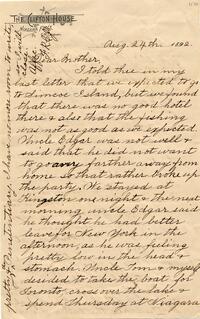 THE CLIFTON HOUSE
NIAGARA FALLS
Aug. 24th 1892.
Dear Brother,
I told thee in my
last letter that we expected to go
to Simcoe Island, but we found
that there was no good hotel
there & also that the fishing
was not as good as we expected.
Uncle Edgar was not well
& said that he did not want to
to go away farther away from
home so that rather broke up
the party. We stayed at
Kingston one night & the next
morning, uncle Edgar said
he thought he had better
leave for New York in the
afternoon, as he was feeling
pretty low in the head &
stomach. Uncle Tom & myself
decided to take the boat for
Toronto, cross over the lake &
spend Thursday at Niagara
pretty & Penetentiary. I have no more room to write